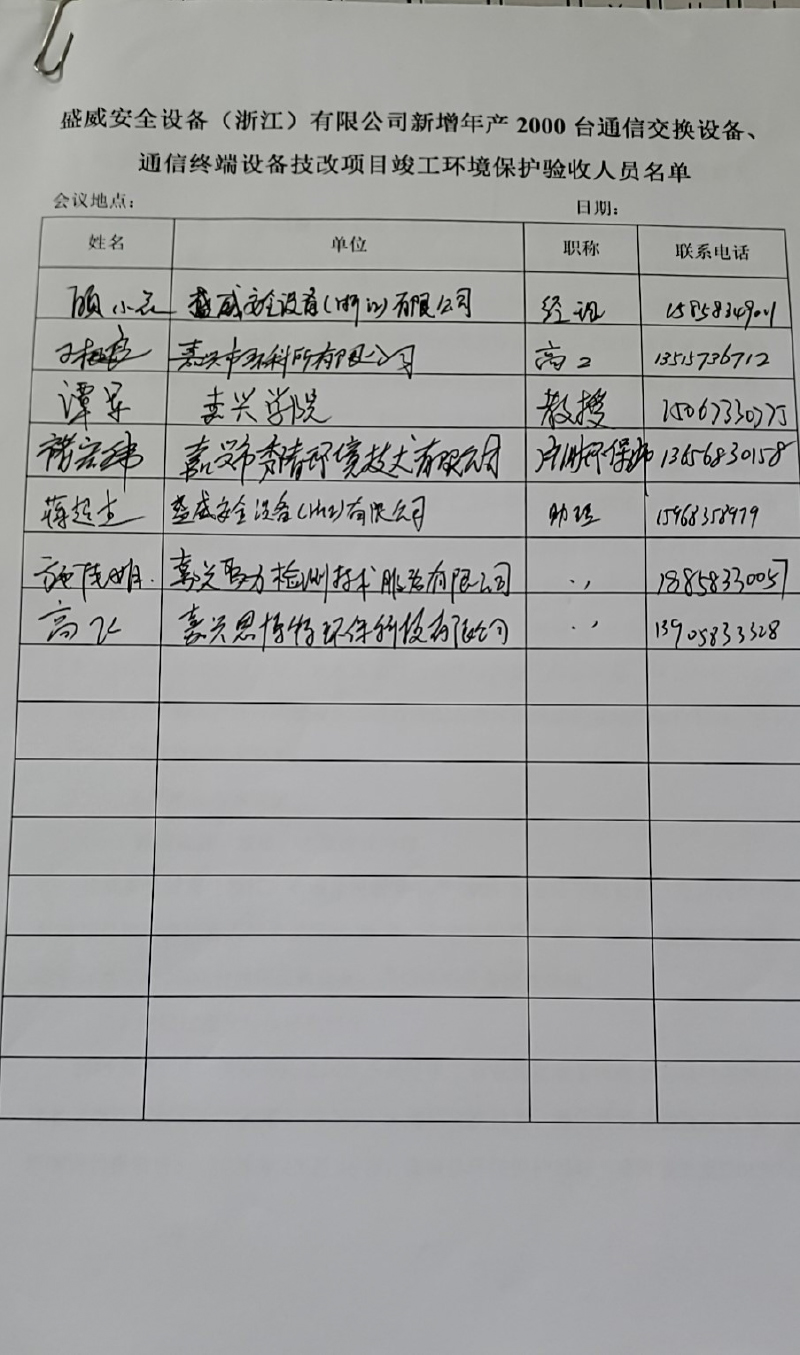 盛威安全设备（浙江）有限公司新增年产 2000 台通信交换设备、
通信终端设备技改项目竣工环境保护验收人员名单
会议地点： 日期：
姓名 单位 职称 联系电话
顾小 盛威安全设备(浙江)有限公司 经理
嘉兴市环科所有限公司 高工 13515736712
谭军 嘉兴学院 教授 15067330775
嘉兴市秀清环境技术有限公司 注册环保师 13656830158
蒋超 盛威安全设备(浙江)有限公司 助理 15968358979
施陆明 嘉兴聚力检测技术服务有限公司 18858330057
高飞 嘉兴思博特环保科技有限公司 13905833328